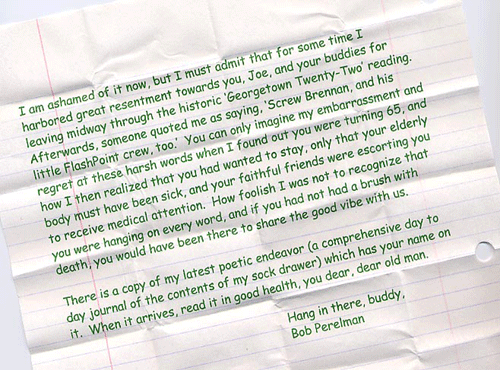 I am ashamed of it now, but I must admit that for some time I
harbored great resentment towards you, Joe, and your buddies for
leaving midway through the historic 'Georgetown Twenty-Two' reading.
Afterwards, someone quoted me as saying, 'Screw Brennan, and his
little FlashPoint crew, too.' You can only imagine my embarrassment and
regret at these harsh words when I found out you were turning 65, and
how I then realized that you had wanted to stay, only that your elderly
body must have been sick, and your faithful friends were escorting you
to receive medical attention. How foolish I was not to recognize that
you were hanging on every word, and if you had not had a brush with
death, you would have been there to share the good vibe with us.
There is a copy of my latest poetic endeavor (a comprehensive day to
day journal of the contents of my sock drawer) which has your name on
it. When it arrives, read it in good health, you dear, dear old man.
Hang in there, buddy,
Bob Perelman